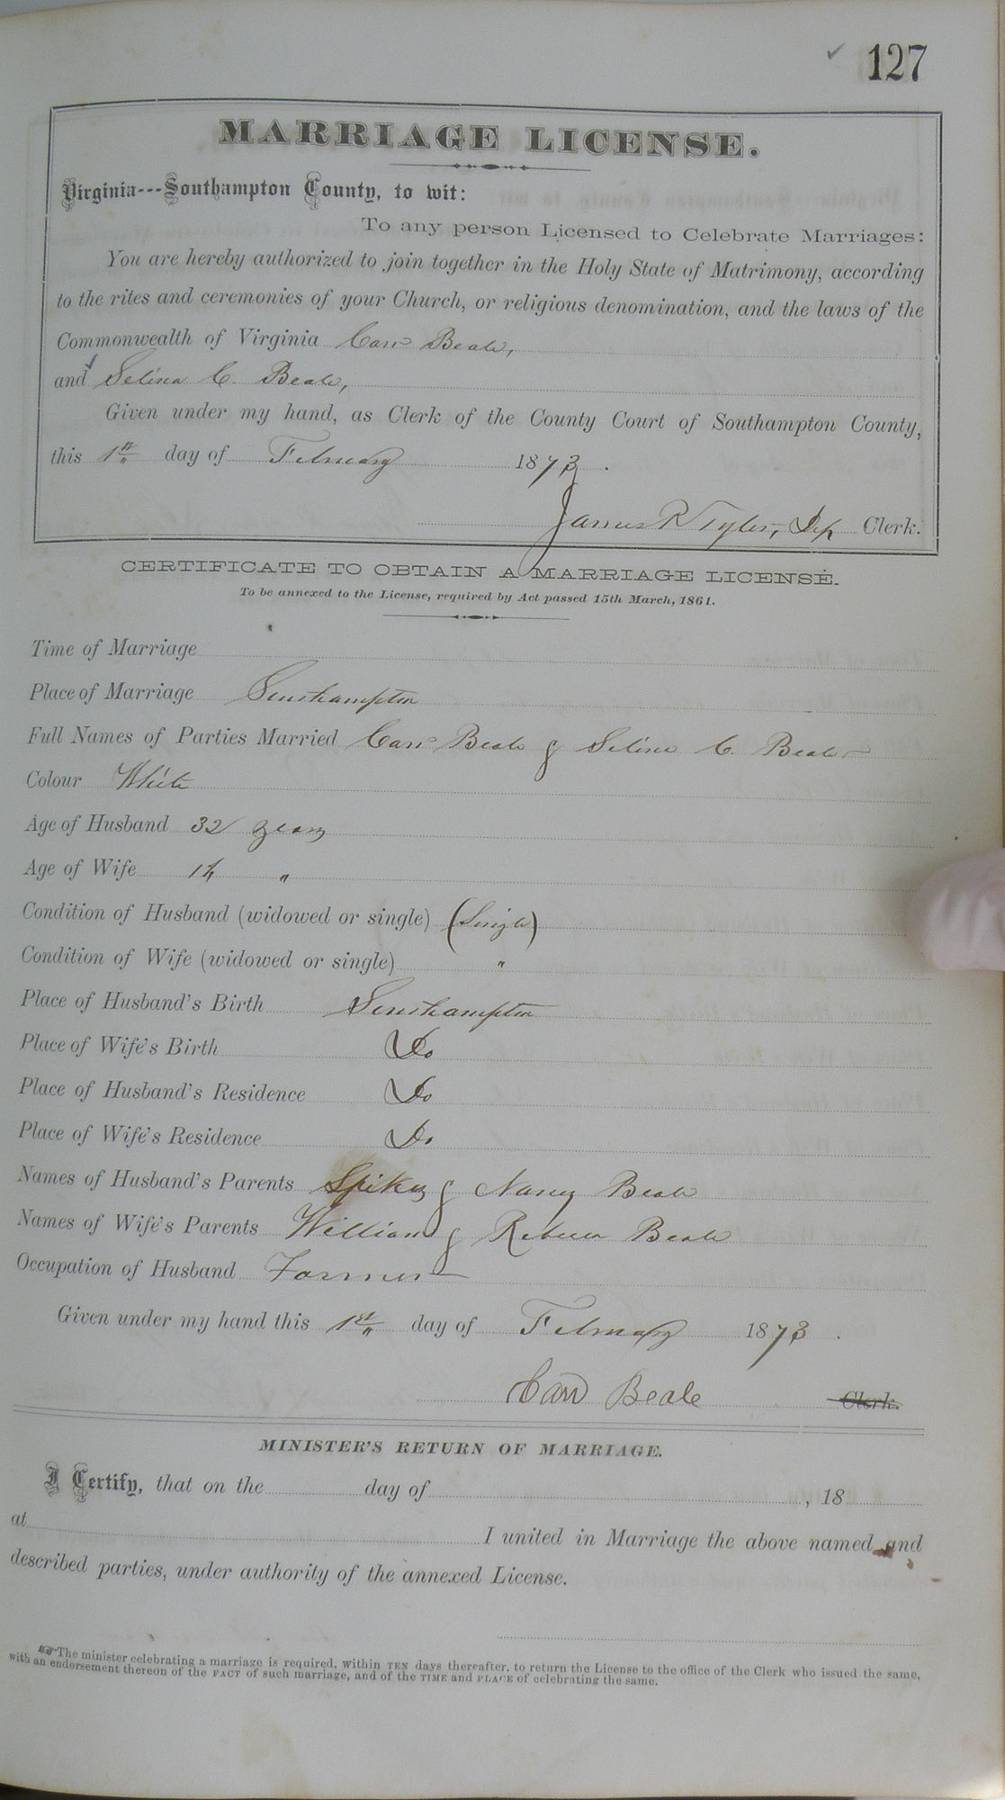 127
MARRIAGE LICENSE.
Virginia---Southampton County, to wit:
To any person Licensed to Celebrate Marriages:
You are hereby authorized to join together in the Holy State of Matrimony, according
to the rites and ceremonies of your Church, or religious denomination, and the laws of the
Commonwealth of Virginia Carr Beale,
and Selina C. Beale,
Given under my hand, as Clerk of the County Court of Southampton County,
this 1st day of February 1873.
James R Tyler, Dep Clerk.
CERTIFICATE TO OBTAIN A MARRIAGE LICENSE.
To be annexed to the License, required by Act passed 15th March, 1861.
Time of Marriage
Place of Marriage Southampton
Full Names of Parties Married Carr Beale & Selina C. Beale
Colour White
Age of Husband 32 years
Age of Wife "
Condition of Husband (widowed or single) (Single)
Condition of Wife (widowed or single) "
Place of Husband's Birth Southampton
Place of Wife's Birth Do
Place of Husband's Residence Do
Place of Wife's Residence Do
Names of Husband's Parents & Nancy Beale
Names of Wife's Parents William & Rebecca Beale
Occupation of Husband Farmer
Given under my hand this 1st day of February 1873.
Carr Beale Clerk.
MINISTER'S RETURN OF MARRIAGE.
I Certify, that on the day of , 18
at I united in Marriage the above named and
described parties, under authority of the annexed License.
The minister celebrating a marriage is required, within TEN days thereafter, to return the License to the office of the Clerk who issued the same,
with an endorsement thereon of the FACT of such marriage, and of the TIME and PLACE of celebrating the same.